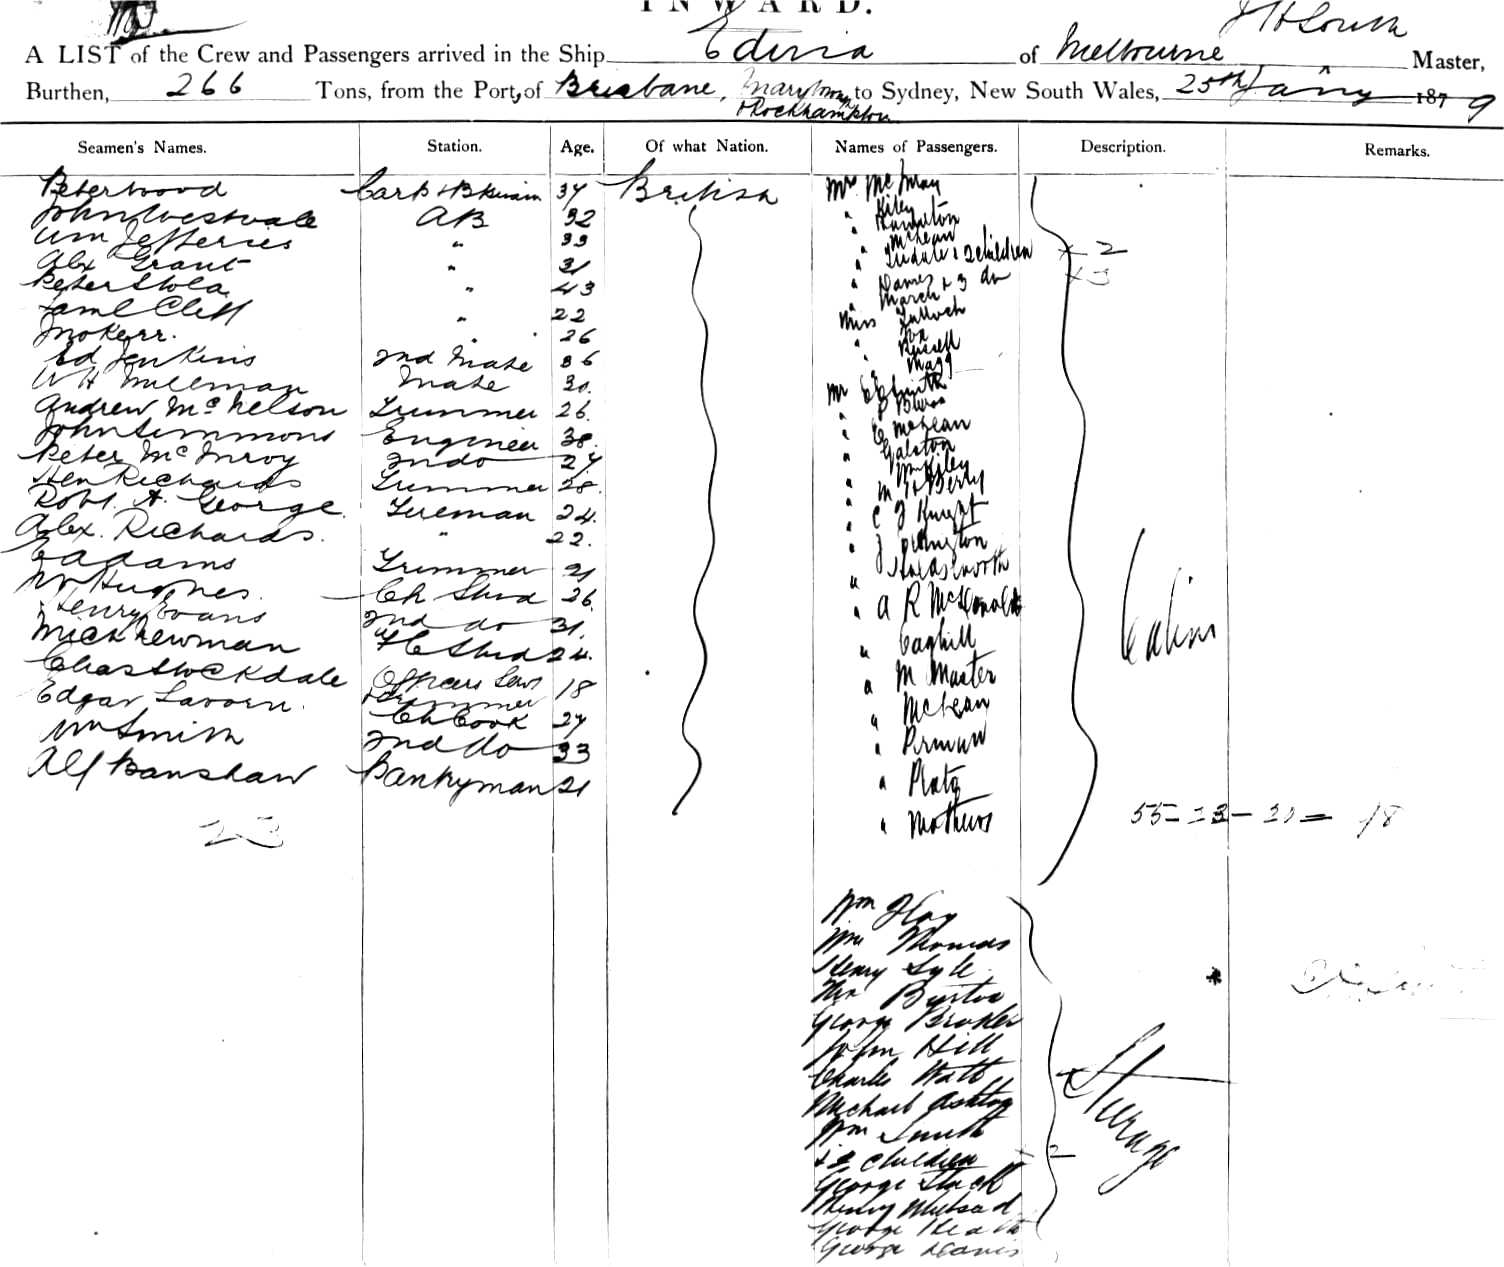 INWARD.
A LIST of the Crew and Passengers arrived in the Ship Edina of Melbourne J H South Master,
Burthen, 266 Tons, from the Port, of Brisbane, Maryboro & Rockhampton to Sydney, New South Wales, 25th Jany 1879
Seamen's Names. Station. Age. Of what Nation. Names of Passengers. Description. Remarks.
Peter Wood Carp & B 37 British
John Westvale AB 32
Wm Jefferies " 33
Alex Grant " 31
Peter " 43
Saml Cliff " 22
Jno Kerr. " 26
Ed Jenkins 2nd Mate 36
W H Milleman Mate 30.
Andrew McNelson Trimmer 26.
John Simmons Engineer 38.
Peter McInroy 2nd do 27
Hen Richards Trimmer 28.
Robt. A. George. Fireman 24.
Alex. Richards. " 22.
E Adams Trimmer 21
Wm Hughes. Ch Stwd 26.
Henry Evans 2nd do 31.
Mich Newman F C Stwd 24.
Chas Stockdale Officers Serv 18
Edgar Lavorn. Trimmer
Ch Cook 27
Wm Smith 2nd do 33
Alf Banshaw Pantryman 21
23
Mrs McMay
" Kiley
" Hamilton
" McLean
" Tisdale & 2 children + 2
" Dames & 3 do + 3
" March
Miss Tulloch
" Fox
" Russell
" Magg
Mr C E Smith
" P Burns
" E McLean
" Galston
" Wm Kiley
" M McBerry
" C J Knight
" J
" Holdsworth
" A R McDonald
" Caghill
" M Master
" McLean
" Pirman
" Platz
" Mothers
Cabin
55 – 23 – 20 = 18
Wm Hay
Wm Thomas
Henry Lyle
Wm Burton
George Broker
John Hill
Charles Watt
Michael Ashton
Wm Smith
& 2 children 2
George Stack
Henry
George Heath
George Davis
Steerage